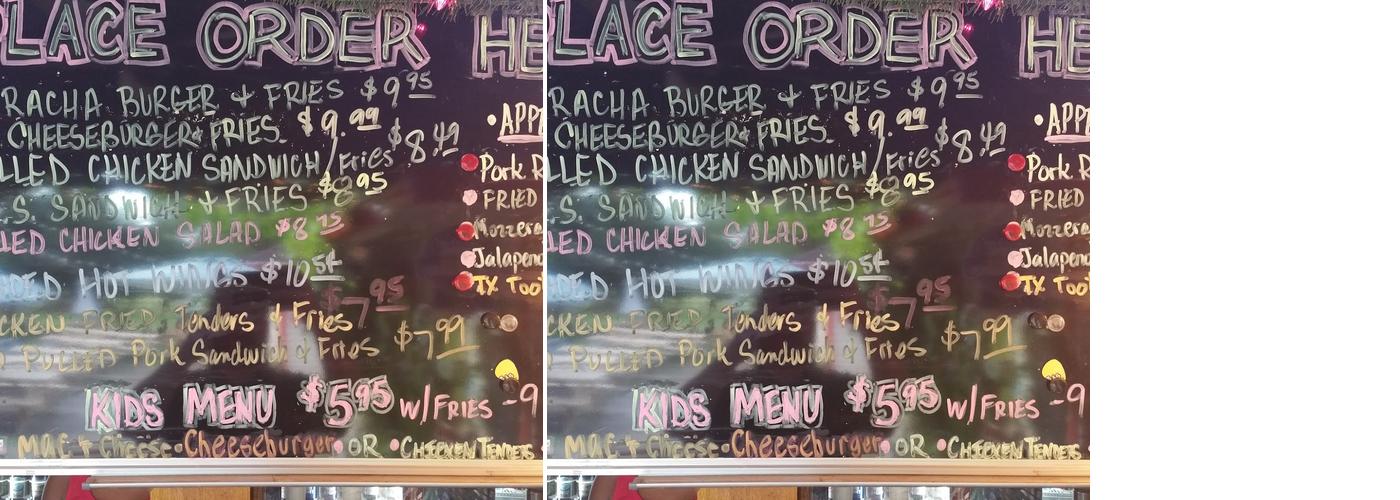 PLACE ORDER HE
RACHA BURGER & FRIES $9.95
CHEESEBURGER & FRIES $9.99
LLED CHICKEN SANDWICH / Fries $8.49
.S. SANDWICH & FRIES $8.95
LED CHICKEN SALAD $8.75
DED HOT WINGS $10.54
CKEN FRIED Tenders & Fries $7.95
PULLED Pork Sandwich & Fries $7.99
KIDS MENU $5.95 W/FRIES -9
• MAC & Cheese • Cheeseburger • OR • CHICKEN TENDERS
• APPE
Pork R
FRIED
Mozzera
Jalapeno
TX Too
PLACE ORDER HE
RACHA BURGER & FRIES $9.95
CHEESEBURGER & FRIES $9.99
LLED CHICKEN SANDWICH / Fries $8.49
.S. SANDWICH & FRIES $8.95
LED CHICKEN SALAD $8.75
DED HOT WINGS $10.54
CKEN FRIED Tenders & Fries $7.95
PULLED Pork Sandwich & Fries $7.99
KIDS MENU $5.95 W/FRIES -9
• MAC & Cheese • Cheeseburger • OR • CHICKEN TENDERS
• APPE
Pork R
FRIED
Mozzera
Jalapeno
TX Too